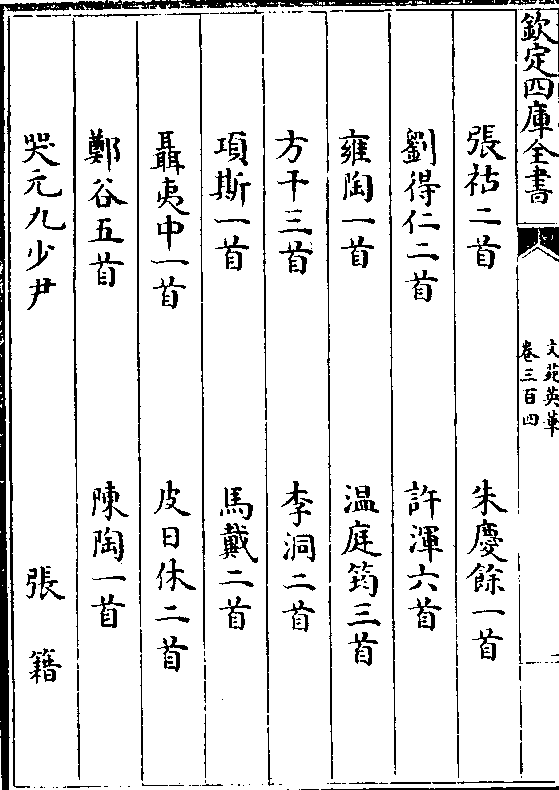 欽定四庫全書
文苑英華
卷三百四
張祜二首 朱慶餘一首
劉得仁二首 許渾六首
雍陶一首 温庭筠三首
方干三首 李洞二首
項斯一首 馬戴二首
聶夷中一首 皮日休二首
鄭谷五首 陳陶一首
哭元九少尹 張籍